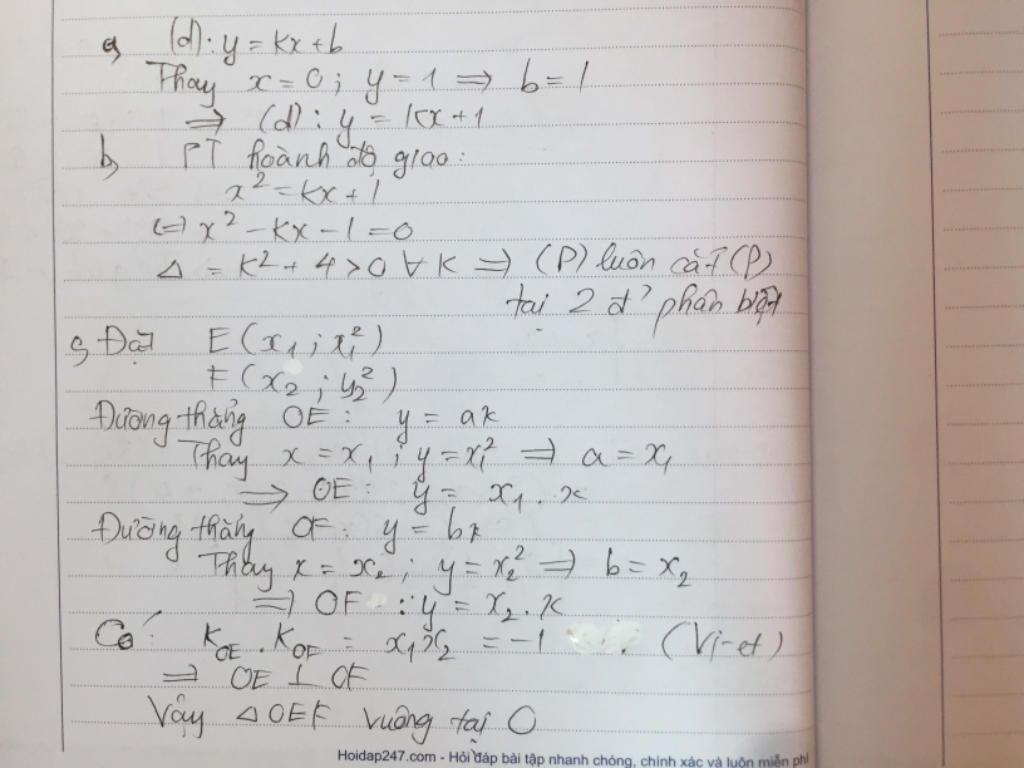 a, (d): y = kx + b
Thay x = 0 ; y = 1 ⇒ b = 1
⇒ (d) : y = kx + 1
b, PT hoành độ giao:
x² = kx + 1
⇔ x² - kx - 1 = 0
Δ = k² + 4 > 0 ∀ k ⇒ (P) luôn cắt (P)
tại 2 đ' phân biệt
c, Đặt E (x₁ ; x₁²)
F (x₂ ; y₂²)
Đường thẳng OE : y = ax
Thay x = x₁ ; y = x₁² ⇒ a = x₁
⇒ OE : y = x₁ . x
Đường thẳng OF : y = bx
Thay x = x₂ ; y = x₂² ⇒ b = x₂
⇒ OF : y = x₂ . x
Có: K_OE . K_OF = x₁x₂ = -1 (Vi-et)
⇒ OE ⊥ OF
Vậy Δ OEF vuông tại O
Hoidap247.com - Hỏi đáp bài tập nhanh chóng, chính xác và luôn miễn phí